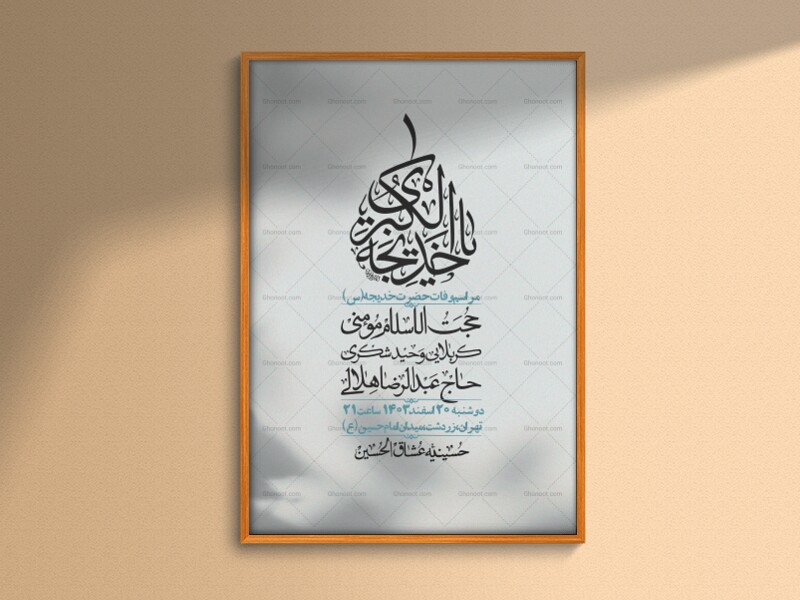 یا خدیجة الکبری
مراسم وفات حضرت خدیجه(س)
حجت الاسلام مومنی
کربلایی وحید شکری
حاج عبدالرضا هلالی
دوشنبه ۲۰ اسفند ۱۴۰۳ ساعت ۲۱
تهران، زردشت، میدان امام حسین (ع)
حسینیه عشاق الحسین
Ghonoot.com